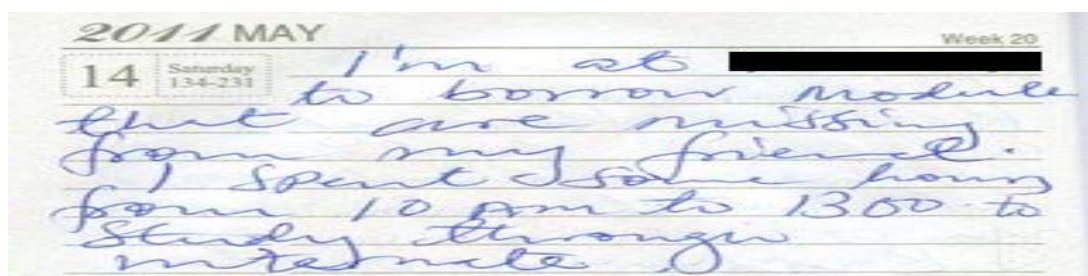 2011 MAY
Week 20
14 Saturday 134-231
I'm at
to borrow module
that are missing
from my friend.
I spent some hours
from 10 am to 1300 to
study through
internate